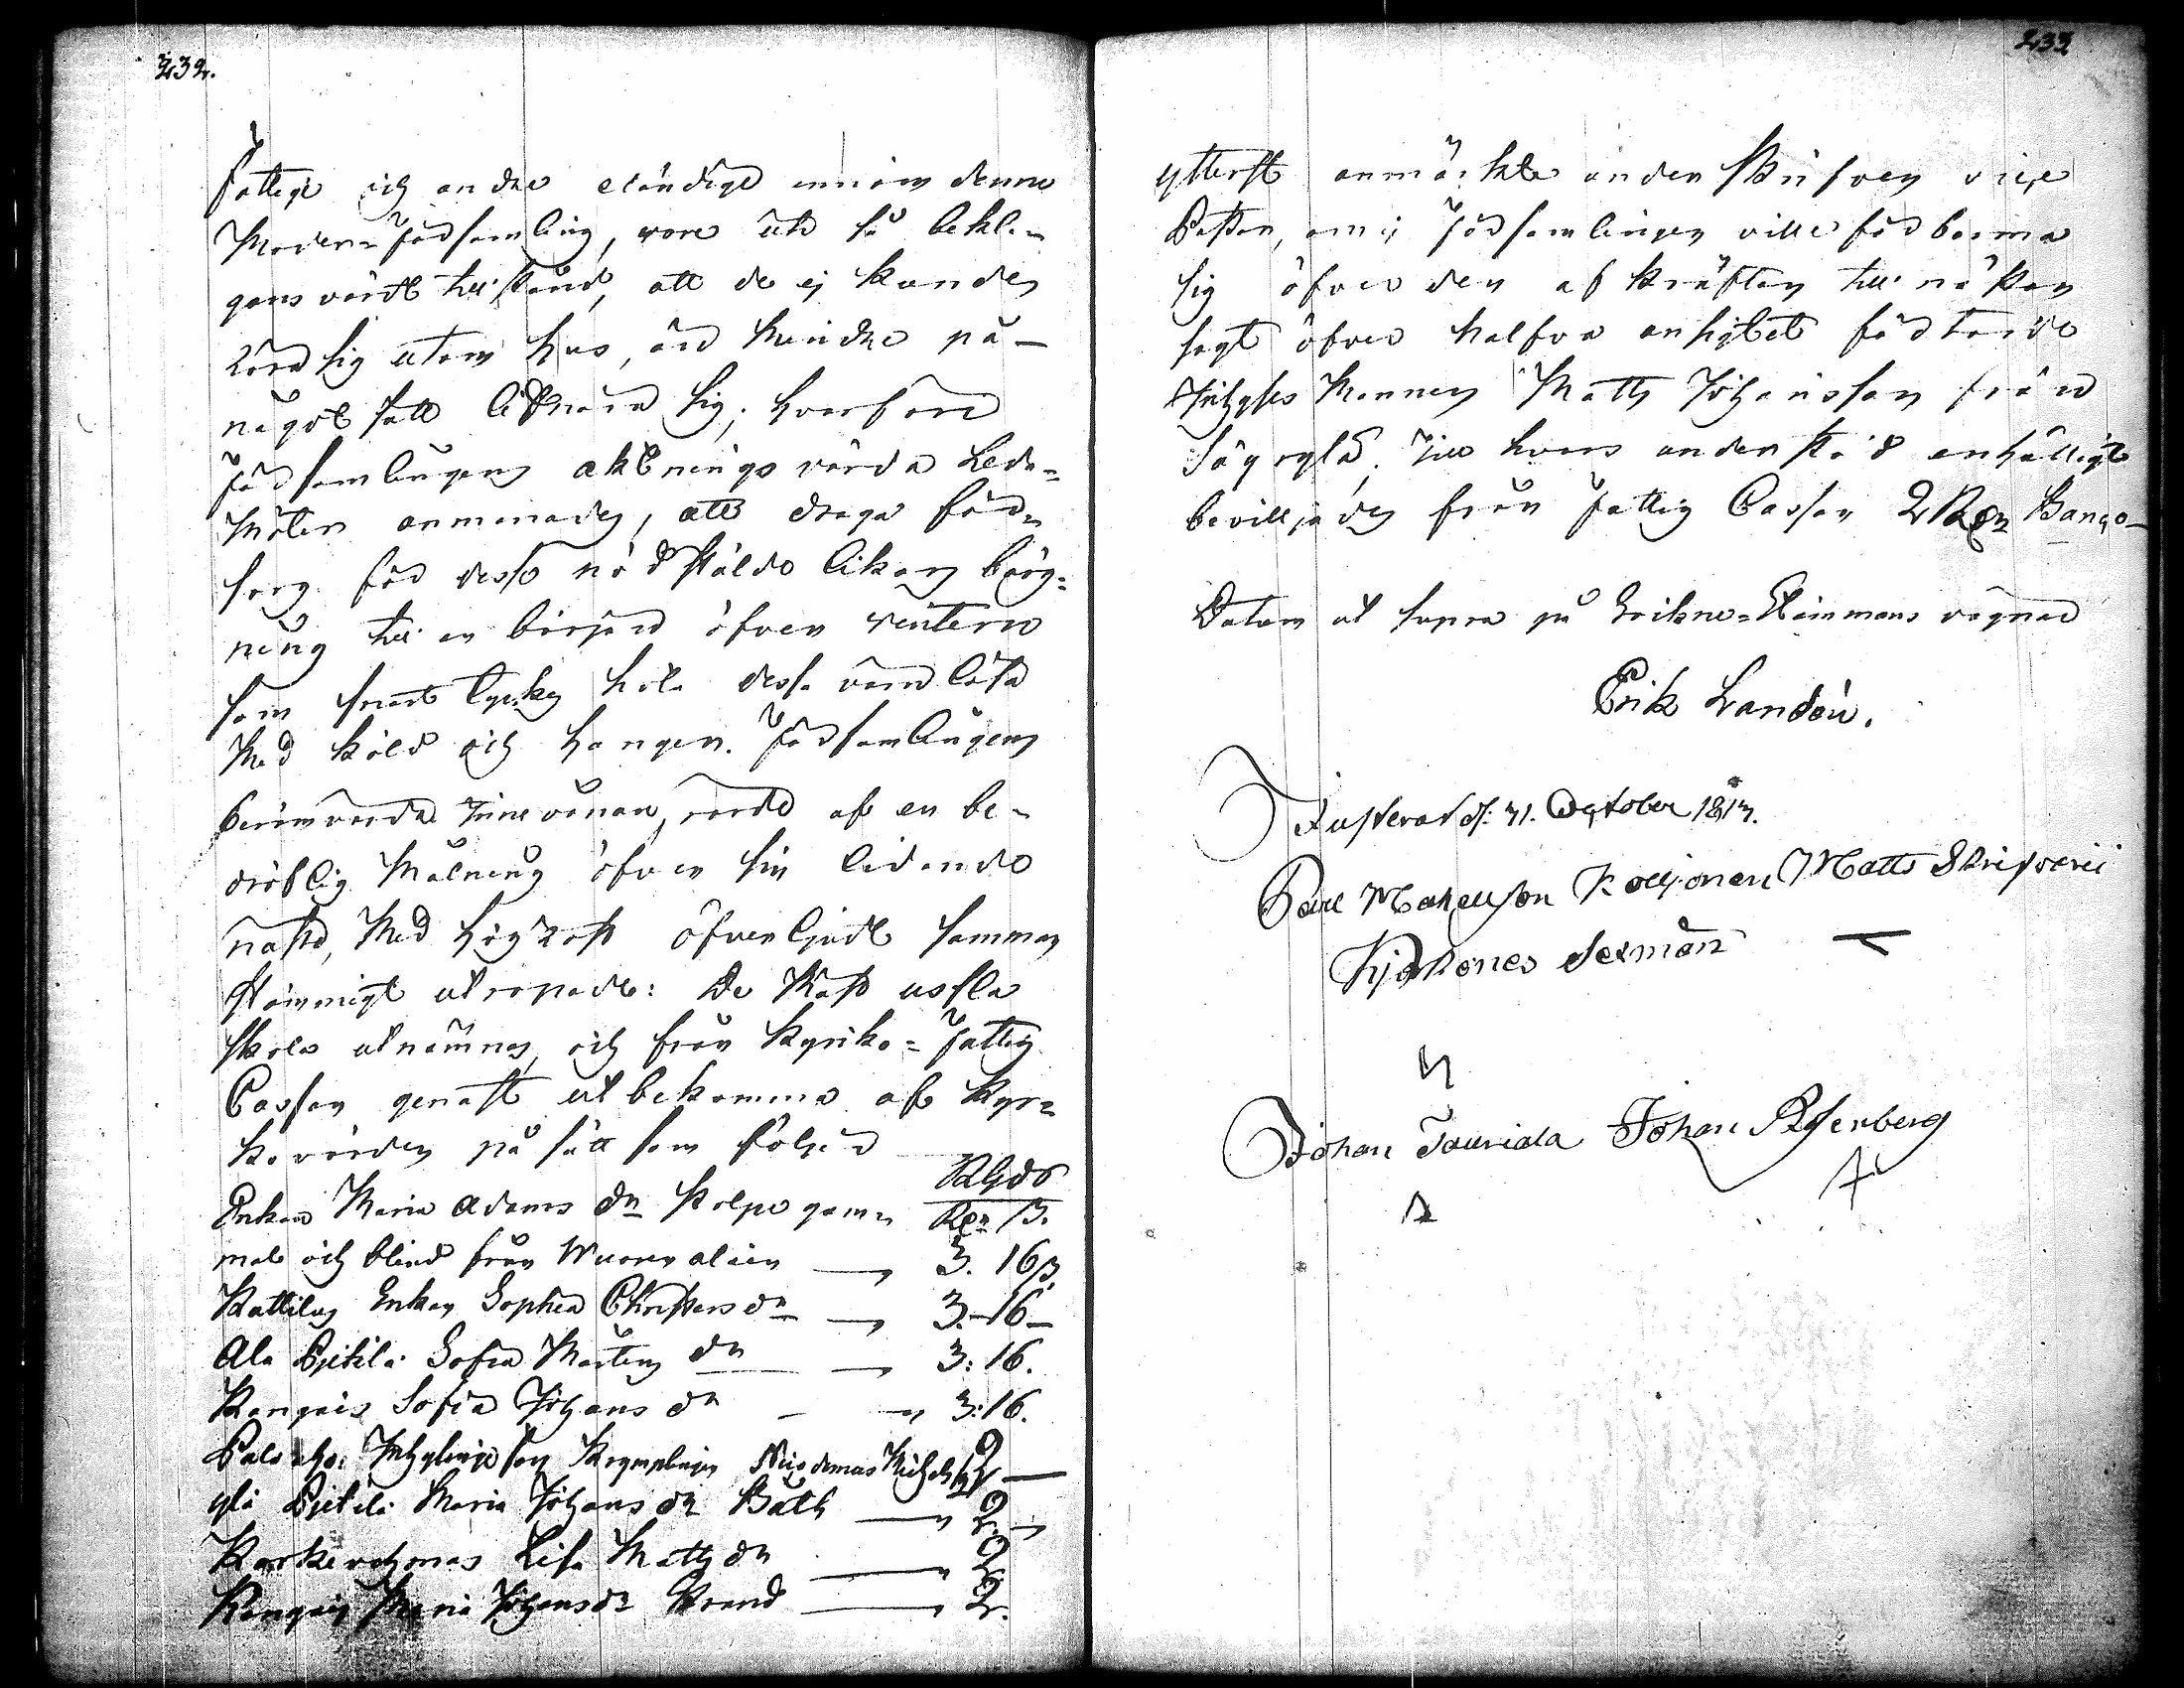 232.
fattige och andre eländige innom denne
Moder-Församling, vore uti så bekla-
gansvärdt tillstånd, att de ej kunde
röra sig utom hus, än mindre på
något sätt lifnära sig; hvarföre
Församlingens aktningsvärda Leda-
möter anmanades, att draga för-
sorg för desse nödstälde likars berg-
ning till en början öfver vintern
som snart tycks hota dessa värnlösa
Med köld och hunger. Församlingens
berömvärda Innevånare, rörde af en be-
dröflig Målning öfver sin lidande
nästa, Med hög röst öfverljudt samman
stämmigt utropade: De Mäst usla
skola utnämnas och från Kyrko-Fattig
Cassan genast utbekomma af Kyr-
kovärden på sätt som följer
RGds
Enkan Maria Adams dr Kolpo gam- Rdr ß.
mal och blind från Wuorenalain — 3. 16ß.
Kattilus Enkan Sophia Christers dr — 3.-16-
Ala Pjetilä Sofia Mårtens dr — 3: 16.
Kangais Sofia Johans dr — 3:16.
Inhyslinge son Krymplingen Nicodemus Michels 2 —
yli Pjetilä Maria Johans dr Bäth — 2. —
Lisa Matts dr — 2.
Kangais Maria Johans dr Strand — 2.
233
ytterst anmärkte under skrifven vice
Pastor, om ej Församlingen ville förbarma
sig öfver den af kräftan till näsan
samt öfver halfva ansigtet förtärde
Inhyses Mannen Matts Johansson från
Till hvars understöd enhälligt
beviljades från Fattig Cassan 2 Rdr Banco-
Datum ut supra på Sockne-Stämmans vägnar
Erik Landén.
Justerat d: 31. October 1813.
Paul Kolljonen Matts Skrifvari
Sexman —
Johan Tauriala Johan Rosenberg